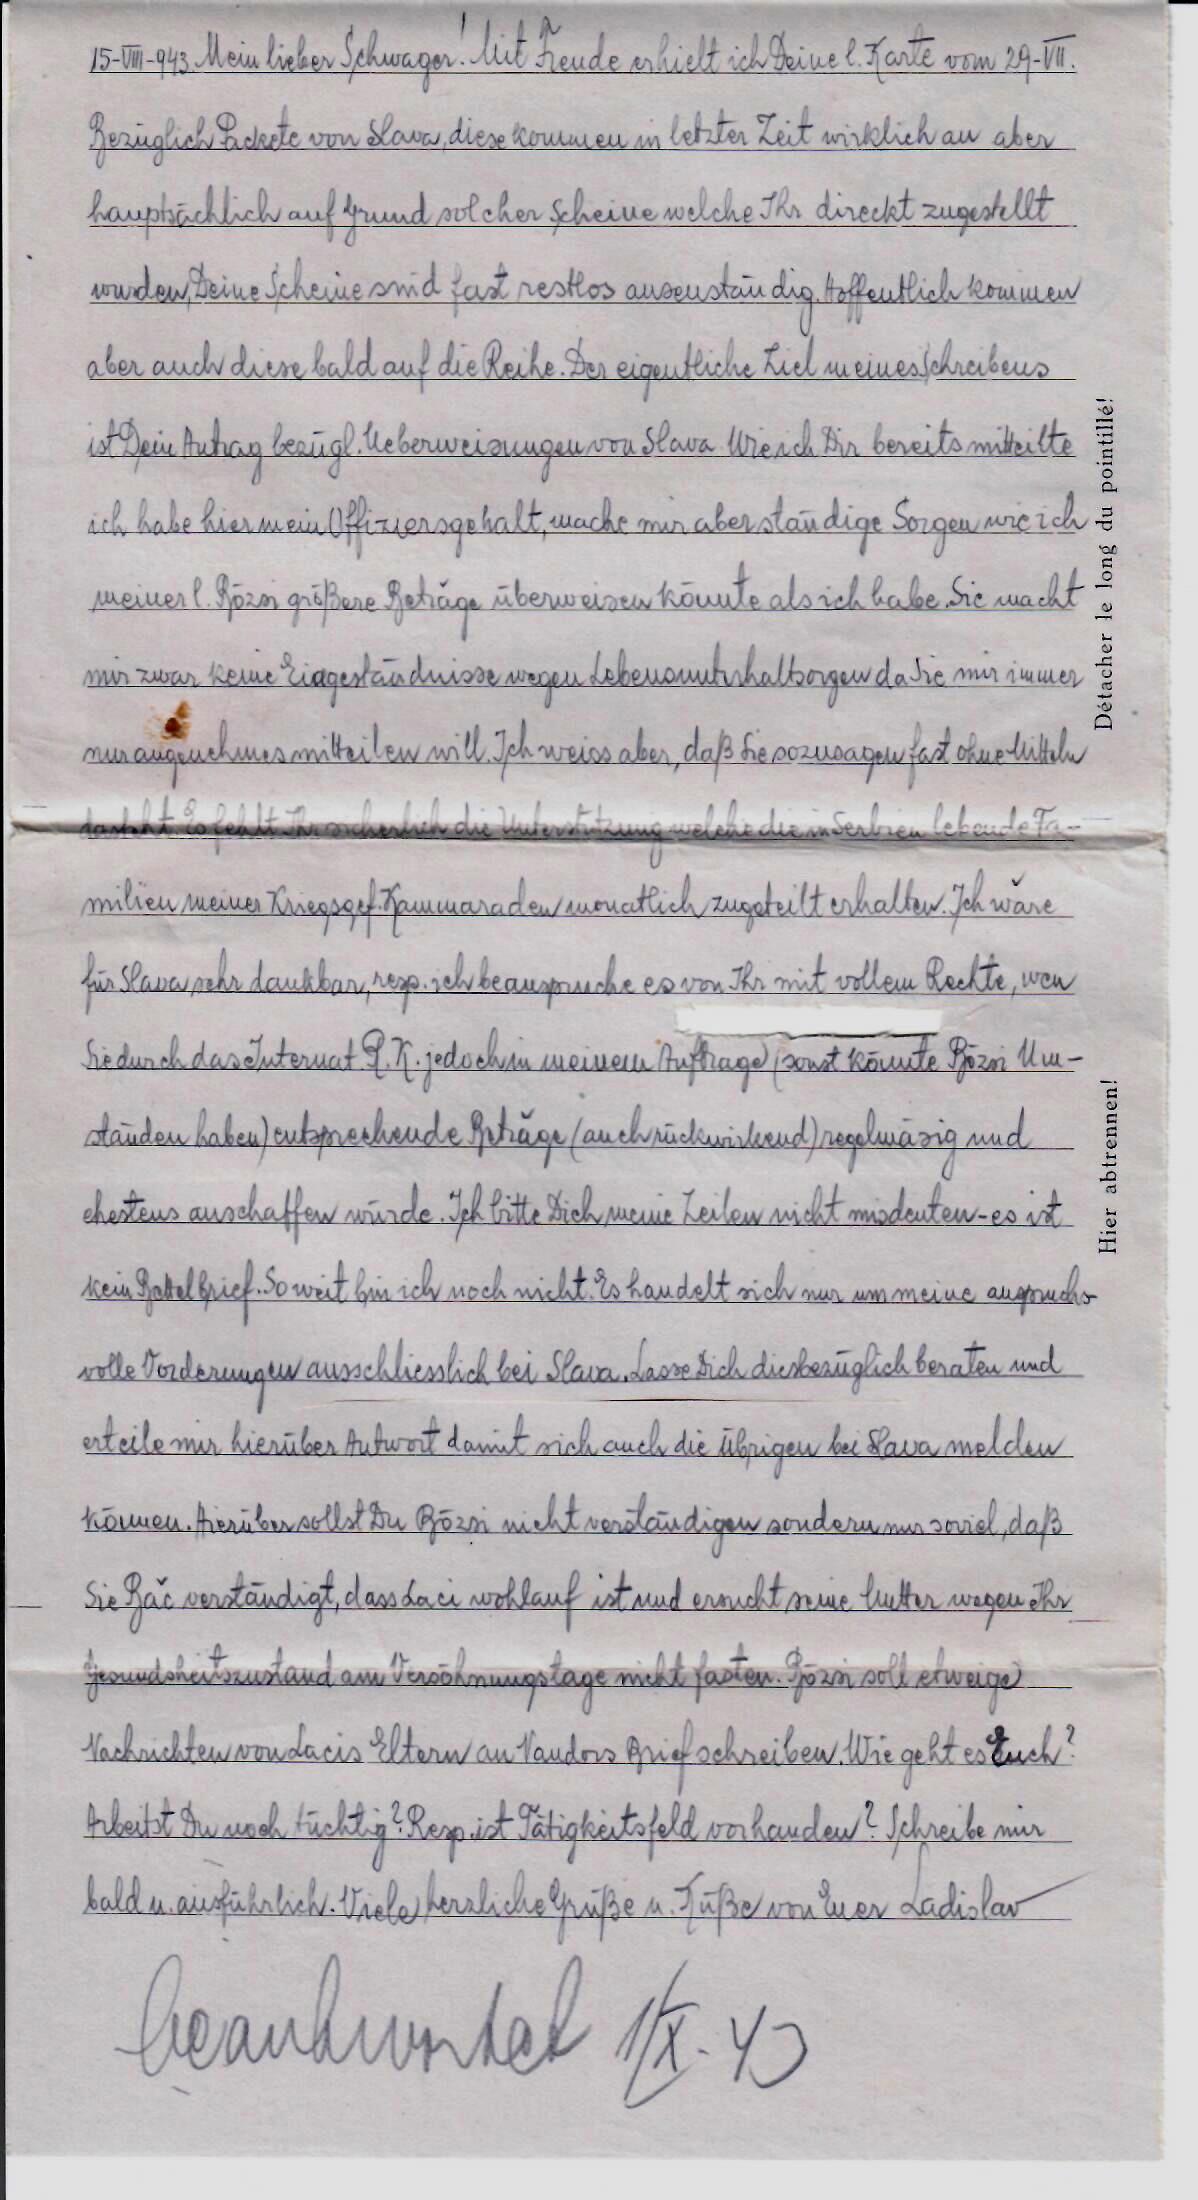 15-VIII-943. Mein lieber Schwager! Mit Freude erhielt ich Deine l. Karte vom 29-VII.
Bezüglich Packete von Slava, diese kommen in letzter Zeit wirklich an aber
hauptsächlich auf Grund solcher Scheine welche Ihr direckt zugestellt
wurden, Deine Scheine sind fast restlos ausenständig. Hoffentlich kommen
aber auch diese bald auf die Reihe. Der eigentliche Ziel meines Schreibens
ist Dein Antrag bezügl. Ueberweisungen von Slava. Wie ich Dir bereits mitteilte
ich habe hier mein Offiziersgehalt, mache mir aber ständige Sorgen wie ich
meiner l. Bözsi größere Beträge überweisen könnte als ich habe. Sie macht
mir zwar keine Eingeständnisse wegen Lebensunterhaltsorgen da Sie mir immer
nur angenehmes mitteilen will. Ich weiss aber, daß Sie sozusagen fast ohne Mitteln
dasteht. Es fehlt Ihr sicherlich die Unterstützung welche die in Serbien lebende Fa-
milien meiner Kriegsgef. Kammaraden monatlich zugeteilt erhalten. Ich wäre
für Slava sehr dankbar, resp. ich beanspruche es von Ihr mit vollem Rechte, wen
Sie durch das Internat. R. K. jedoch in meinem Auftrage (sonst könnte Bözsi Um-
ständen haben) entsprechende Beträge (auch rückwirkend) regelmäsig und
ehestens anschaffen würde. Ich bitte Dich meine Zeilen nicht misdeuten - es ist
kein Bettelbrief. So weit bin ich noch nicht. Es handelt sich nur um meine anspruchs-
volle Vorderungen ausschliesslich bei Slava. Lasse Dich diesbezüglich beraten und
erteile mir hierüber Antwort damit sich auch die übrigen bei Slava melden
können. Hierüber sollst Du Bözsi nicht verständigen sondern nur soviel, daß
Sie Bač verständigt, dass Laci wohlauf ist und ersucht seine Mutter wegen Ihr
Gesundsheitszustand am Versöhnungstage nicht fasten. Bözsi soll etweige
Nachrichten von Lacis Eltern an Vandors Brief schreiben. Wie geht es Euch?
Arbeitst Du noch tüchtig? Resp. ist Tätigkeitsfeld vorhanden? Schreibe mir
bald u. ausführlich. Viele herzliche Grüße u. Küße von Euer Ladislav
beantwortet 1/X - 43
Détacher le long du pointillé!
Hier abtrennen!